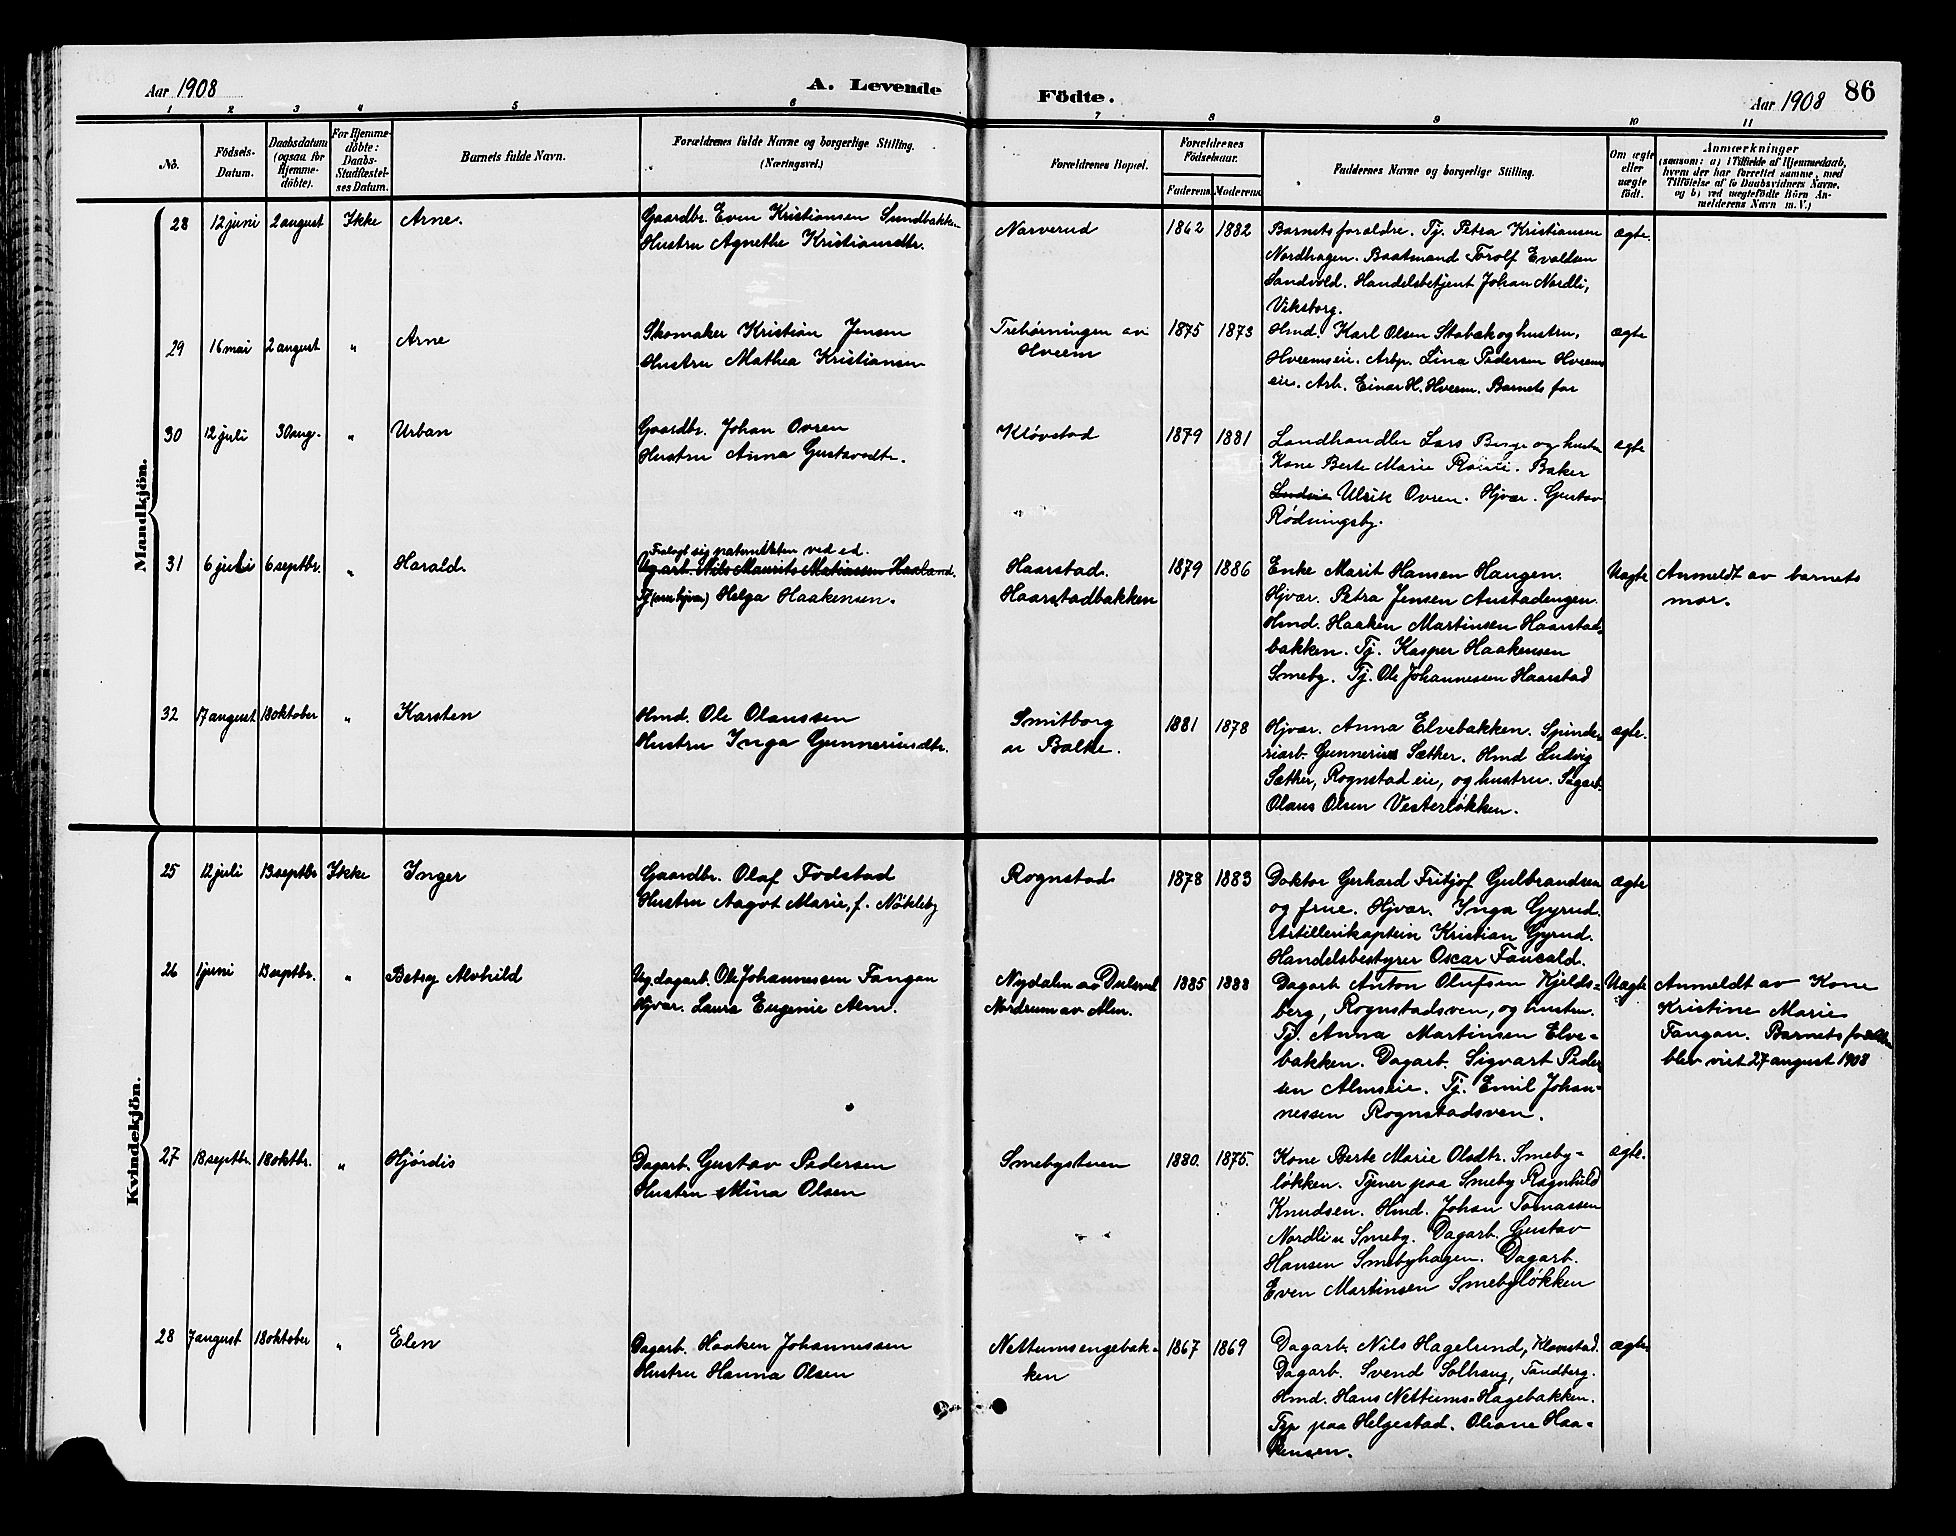 Aar 1908
A. Levende
Födte.
Aar 1908
86
1 2 3 4 5 6 7 8 9 10 11
No.
Födsels-
Datum.
Daabsdatum
(ogsaa for
Hjemme-
döbte).
For Hjemme-
döbte:
Daabs-
Stadfæstel-
ses Datum.
Barnets fulde Navn.
Forældrenes fulde Navne og borgerlige Stilling.
(Næringsvei.)
Forældrenes Bopæl.
Forældrenes
Födselsaar.
Faderens Moderens
Faddernes Navne og borgerlige Stilling.
Om ægte
eller
uægte
født.
Anmærkninger
(saasom: a) i Tilfælde af Hjemmedaab,
hvem der har forrettet samme, med
Tilföielse af to Daabsvidners Navne,
og b) ved uægtefödte Börn An-
melderens Navn m. V.)
Mandkjön.
28 12 juni 2 august Ikke Arne.
Gaardbr. Even Kristiansen Sundbakken
Hustru Agnethe Kristiansdtr.
Narverud
1862 1882
Barnets forældre. Tj. Petra Kristiansen
Nordhagen. Baatmand Torolf Evaldsen
Sandvold. Handelsbetjent Johan Nordli,
Viksborg.
ægte.
29 16 mai 2 august " Arne
Skomaker Kristian Jensen
Hustru Mathea Kristiansen
Trehørningen av
Hveem
1875 1873
Hmd. Karl Olsen Stabæk og hustru,
Hveemseie. Arbp. Lina Pedersen Hveems
eie. Arb. Einar H. Hveem. Barnets far
ægte
30 12 juli 30 aug. " Urban
Gaardbr. Johan Ovren
Hustru Anna Gustavdtr.
Kløvstad
1879 1881
Landhandler Lars Berge og hustru
Kone Berte Marie Baker
Ulrik Ovren. Hjvær. Gustav
Rødningsby.
ægte
31 6 juli 6 septbr. " Harald
Fralagt sig paterniteten ved ed.
Ug. arb. Nils Maurits Matiassen Haaland.
Tj. Helga Haakensen.
Haarstad.
Haarstadbakken
1879 1886
Enke Marit Hansen Haugen.
Hjvær. Petra Jensen Austadengen.
Hmd. Haaken Martinsen Haarstad-
bakken. Tj. Kasper Haakensen
Smeby. Tj. Ole Johannessen Haarstad
Uægte
Anmeldt av barnets
mor.
32 17 august 18 oktober " Karsten
Hmd. Ole Olanssen
Hustru Inga Gunneriusdtr.
Smitborg
u Balke.
1881 1878
Hjvær. Anna Elvebakken. Spinde-
riarb. Gunnerius Sæther. Hmd Ludvig
Sæther, Rognstad eie, og hustru. Sagarb.
Olaus Olsen Vesterløkken.
ægte.
Kvindekjön.
25 12 juli 13 septbr Ikke Inger
Gaardbr. Olaf Fodstad
Hustru Aagot Marie, f. Nökleby
Rognstad
1878 1883
Doktor Gerhard Fritjof Gulbrandsen
og frue. Hjvær. Inga Gyrud.
Artillerikaptein Kristian Gyrud.
Handelsbestyrer Oscar Faucald.
ægte
26 1 juni 13 septbr. " Betsy Alvhild
Ug. dagarb. Ole Johannessen Fangan
Hjvær. Laura Eugenie Alm.
Nydalen av
Nordrum av Alm.
1885 1888
Dagarb. Anton Olufsen Kjelds-
berg, Rognstadsven, og hustru.
Tj. Anna Martinsen Elve-
bakken. Dagarb. Sigvart Peder
sen Almseie. Tj. Emil Johan-
nessen Rognstadsven.
Uægte
Anmeldt av Kone
Kristine Marie
Fangan. Barnets forældre
blev viet 27 august 1908
27 18 septbr. 18 oktbr. " Hjørdis
Dagarb. Gustav Pedersen
Hustru Mina Olsen
Smebystuen
1880. 1875.
Kone Berte Marie Olsdtr. Smeby-
løkken. Tjener paa Smeby Ragnhild
Knudsen. Hmd. Johan Tomassen
Nordli u Smeby. Dagarb. Gustav
Hansen Smebyhagen. Dagarb.
Even Martinsen Smebyløkken
ægte.
28 7 august 18 oktober " Elen
Dagarb. Haaken Johannessen
Hustru Hanna Olsen
Nettumsengebak-
ken
1867 1869
Dagarb. Nils Hagelund, Klomstad.
Dagarb. Svend Solhaug, Tandberg.
Hmd. Hans Nettums-Hagebakken.
Tjp paa Helgestad. Oleane Haa-
kensen.
ægte